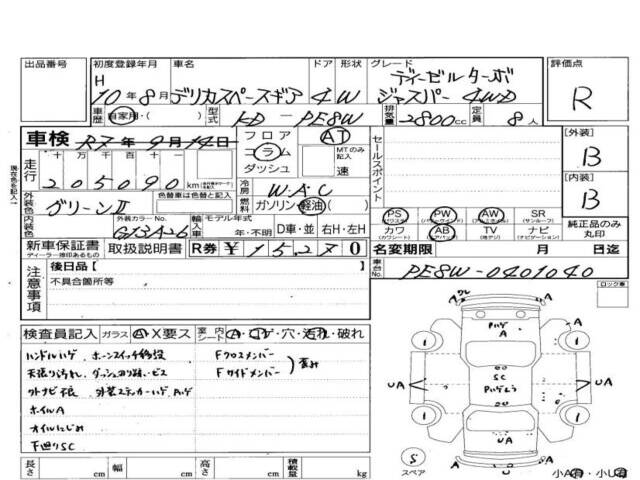 出品番号 初度登録年月 車名 ドア 形状 グレード 評価点
H ディーゼルターボ
10年8月 デリカスペースギア 4W ジャスパー 4WD R
車歴 自家用・( ) 型式 KD-PE8W 排気量 2800cc 定員 8人
車検 R7年9月14日
フロア AT
コラム MTのみ記入
ダッシュ 速
セールスポイント
[外装]
B
[内装]
B
走行 十 万 千 百 十
205090 km
冷房 W.A.C
燃料 ガソリン・軽油( )
外装色 グリーンⅡ 色替車は色替と記入
内装色 外装カラーNo. G13A26 輸入車 モデル年式 年・不明 D車・並 右H・左H
PS PW AW SR
(パワステ) (パワーウィンドー) (アルミホイル) (サンルーフ)
カワ AB TV ナビ
(カワシート) (エアバック) (地デジ)
純正品のみ丸印
新車保証書 取扱説明書 R券 ¥ 15270
ディーラー捺印あるもの
名変期限 月 日迄
車台No. PE8W-0401040
現在色を記入
注意事項
後日品【 】
不具合箇所等
ロック車
検査員記入 ガラス A・X要ス 室内シート A・コゲ・穴・汚れ・破れ
ハンドルハゲ ホーンスイッチ移設 Fクロスメンバー
天張り汚れ ダッシュ廻り跡・ビス Fサイドメンバー
外ナビ不良 外装ステッカーハゲ ハゲ
ホイルA
オイルにじみ
下廻りSC
ハゲ
A
UA
SC
UA
UA
S
スペア
小A有・小U有
長さ cm 幅 cm 高さ cm 積載量 kg